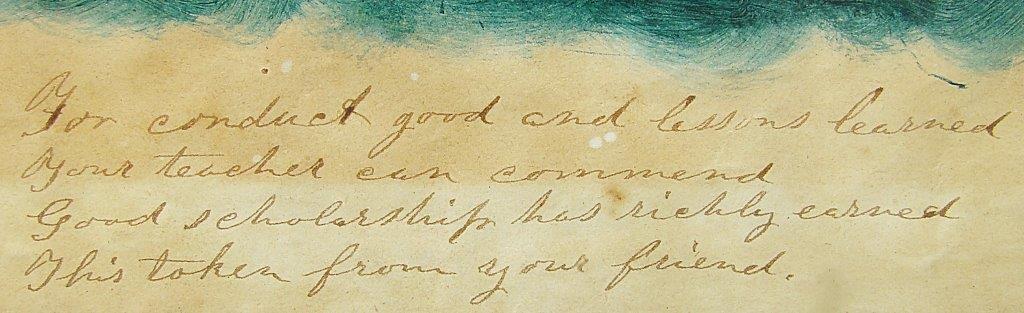 For conduct good and lessons learned
Your teacher can commend
Good scholarship has richly earned
This token from your friend.